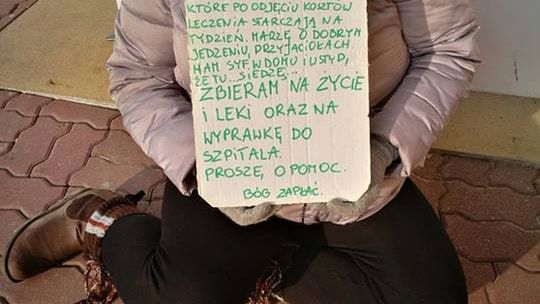 KTÓRE PO ODJĘCIU KOSZTÓW
LECZENIA STARCZAJĄ NA
TYDZIEŃ. MARZĘ O DOBRYM
JEDZENIU, PRZYJACIOŁACH.
MAM SYF W DOMU I USTYD,
ŻE TU... SIEDZĘ...
ZBIERAM NA ŻYCIE
I LEKI ORAZ NA
WYPRAWKĘ DO
SZPITALA.
PROSZĘ, O POMOC.
BÓG ZAPŁAĆ.